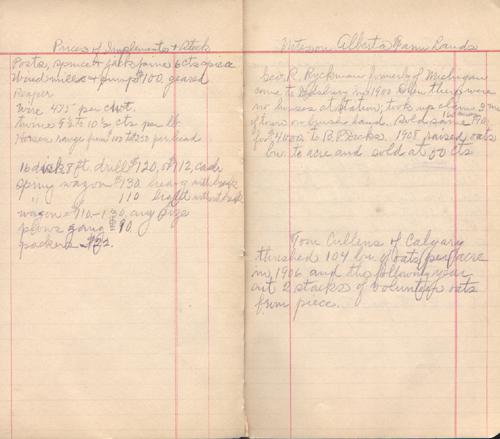 Prices of Implements & Stock
Posts, spruce & jack pine 6 cts apiece
Wind mills & pumps $100, geared
Reaper
Wire 4.75 per cwt.
twine 9½ to 10½ cts per lb.
Horses range from 100 to 250 per head
16 disk 8 ft. drill $120, or 112, cash
spring wagon $130 heavy with brake
" " 110 light without brake
wagons 110-130, any size
plows gang 90
packers $92.
Notes on Alberta Farm Lands
Geo. R. Ryckman formerly of Michigan
came to Didsbury in 1900 when there were
no houses at station, took up claim 3 mi
of town on brush land. Sold same 
for $4000 to B. P. 1908 raised oats
bu. to acre and sold at 50 cts
Tom Cullens of Calgary
threshed 104 bu. of oats per acre
in 1906 and the following year
cut 2 stacks of volunteer oats
from piece.